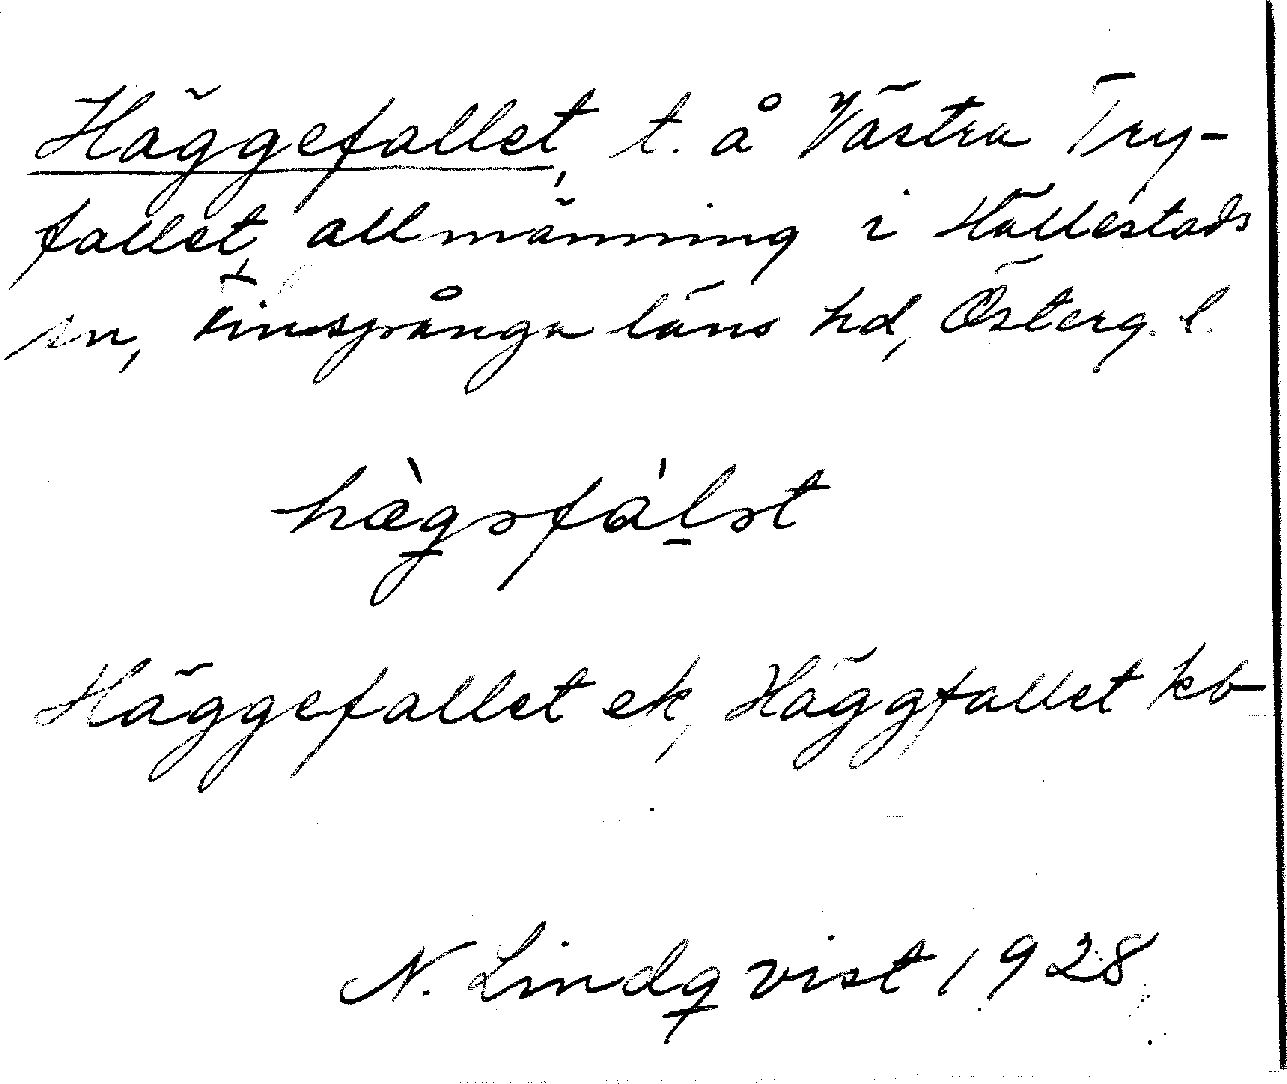 Häggefallet, t. å Västra Try-
fallet, allmänning i Hällestads
sn, Finspånga läns hd, Österg. l.
Häggefallet ek, Häggfallet kb
N. Lindqvist 1928